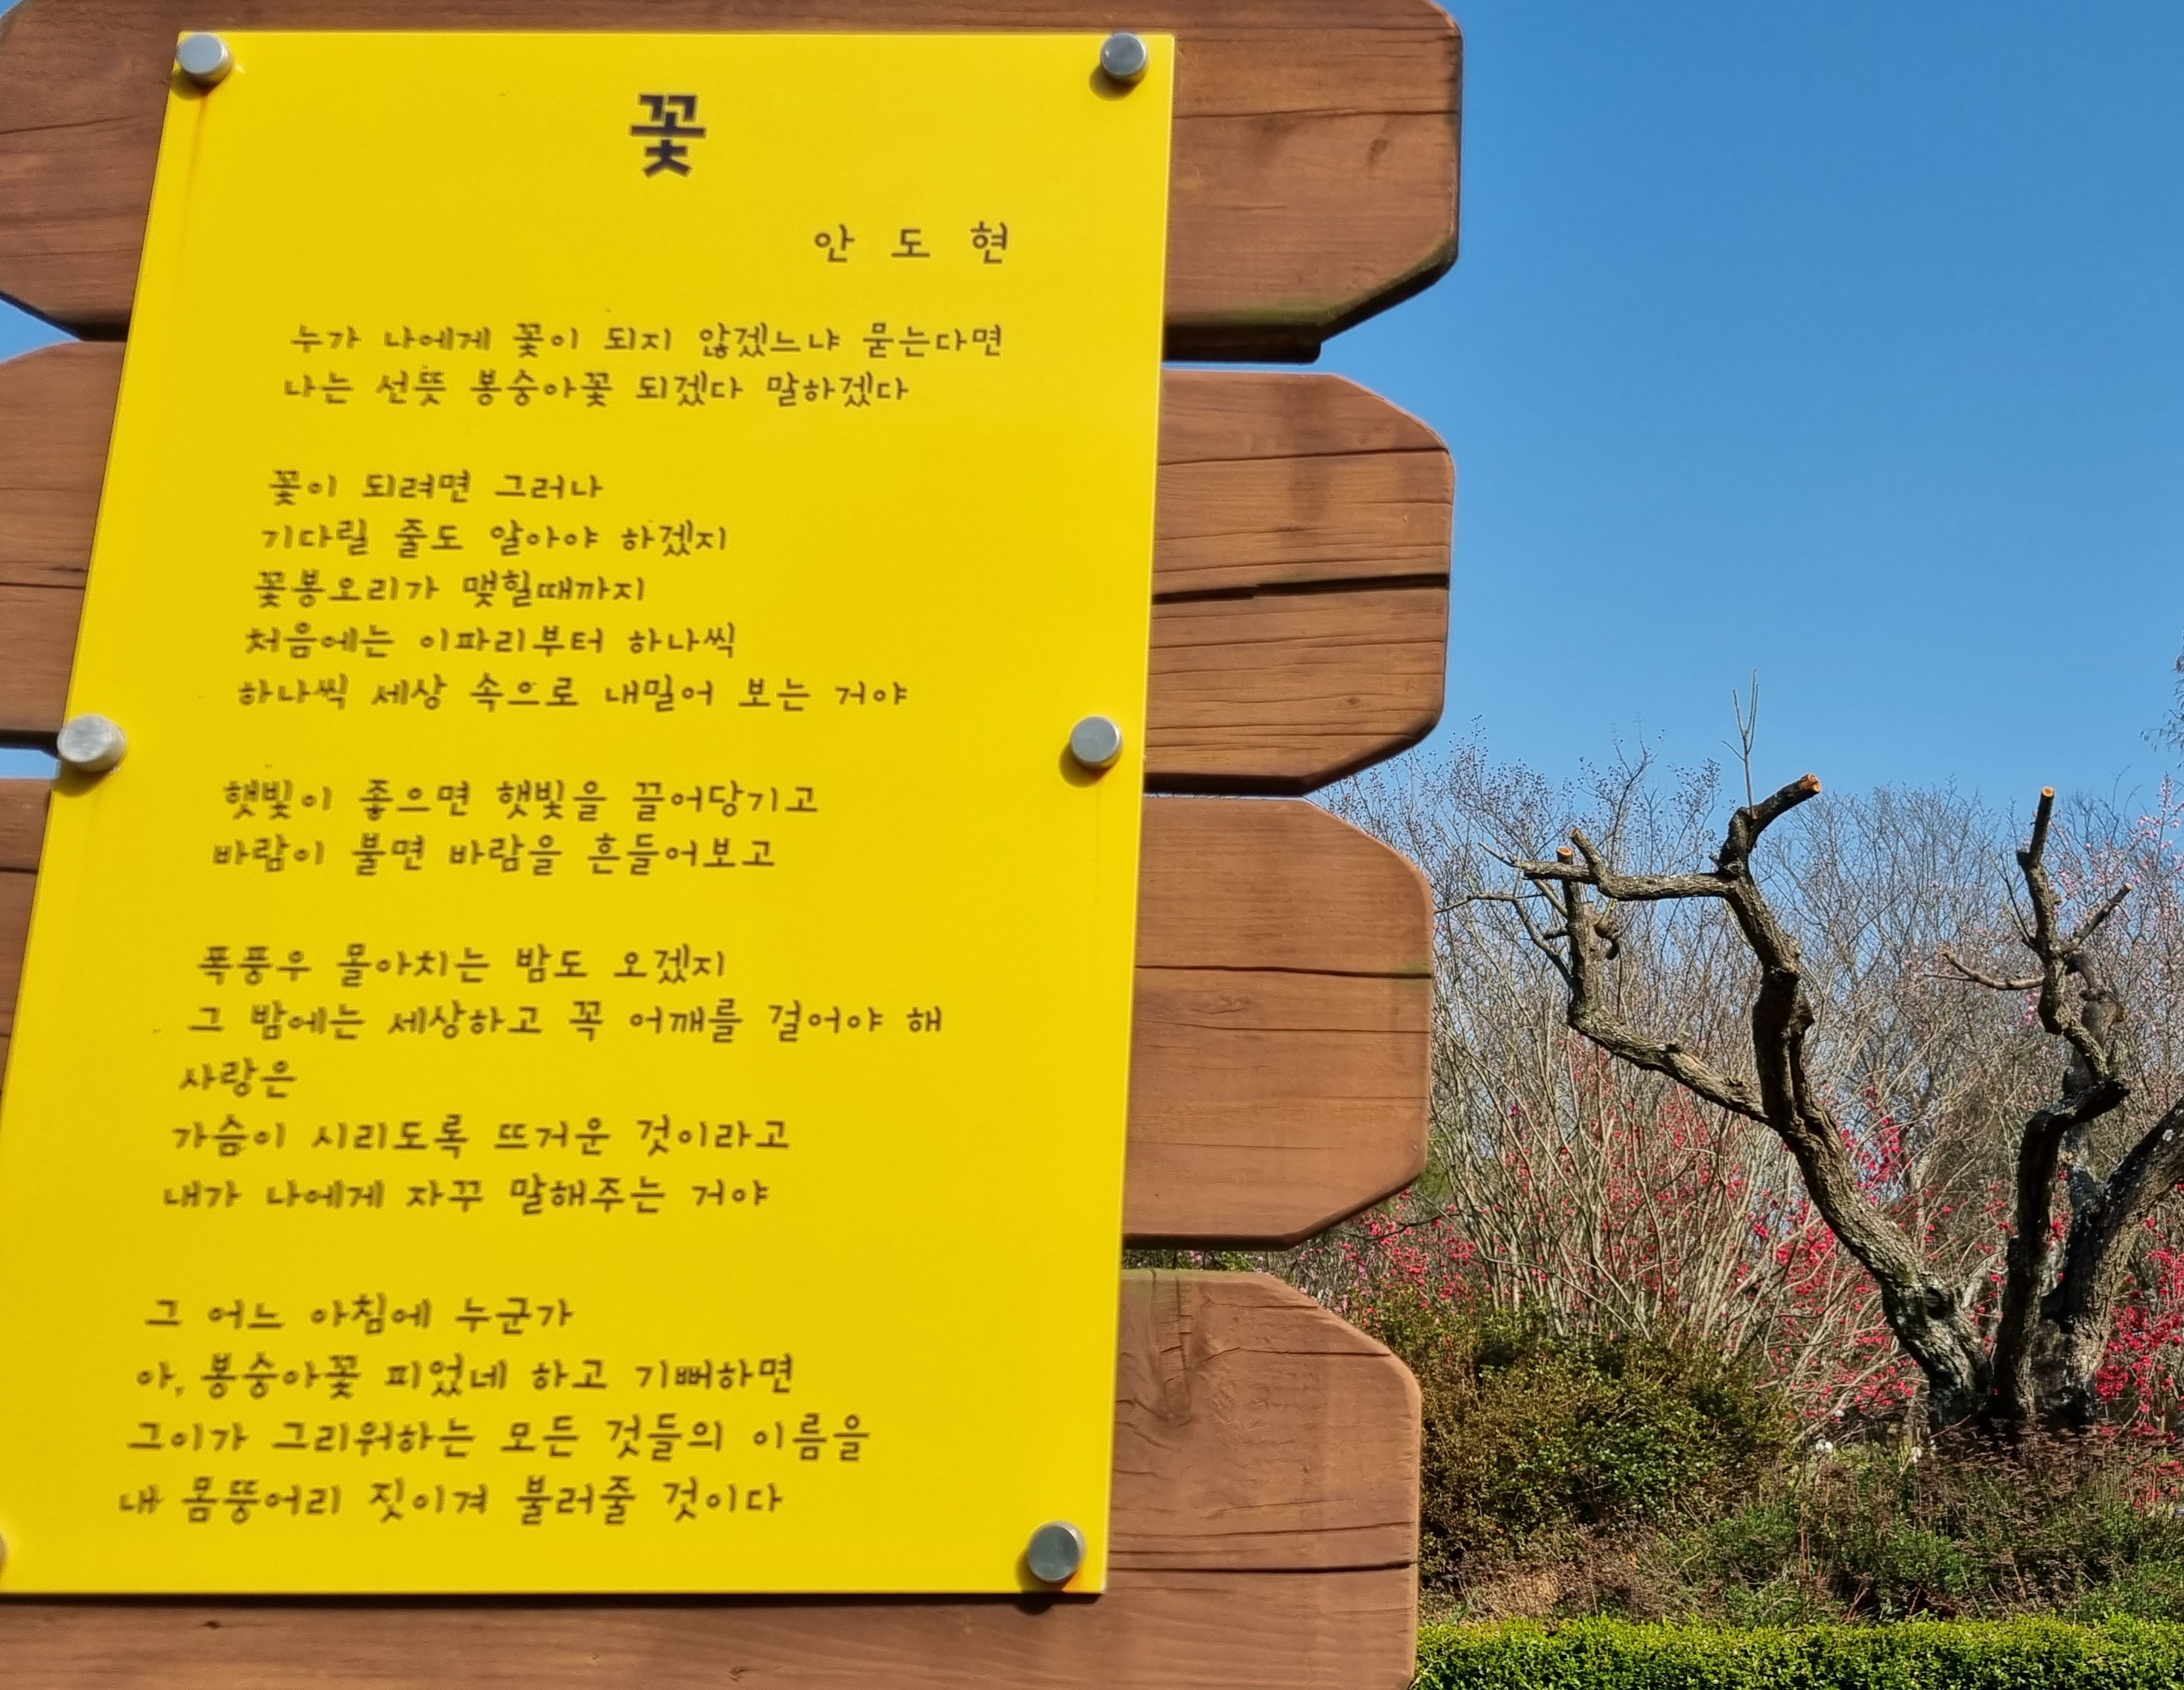 꽃
안 도 현
누가 나에게 꽃이 되지 않겠느냐 묻는다면
나는 선뜻 봉숭아꽃 되겠다 말하겠다
꽃이 되려면 그러나
기다릴 줄도 알아야 하겠지
꽃봉오리가 맺힐때까지
처음에는 이파리부터 하나씩
하나씩 세상 속으로 내밀어 보는 거야
햇빛이 좋으면 햇빛을 끌어당기고
바람이 불면 바람을 흔들어보고
폭풍우 몰아치는 밤도 오겠지
그 밤에는 세상하고 꼭 어깨를 걸어야 해
사랑은
가슴이 시리도록 뜨거운 것이라고
내가 나에게 자꾸 말해주는 거야
그 어느 아침에 누군가
아, 봉숭아꽃 피었네 하고 기뻐하면
그이가 그리워하는 모든 것들의 이름을
내 몸뚱어리 짓이겨 불러줄 것이다